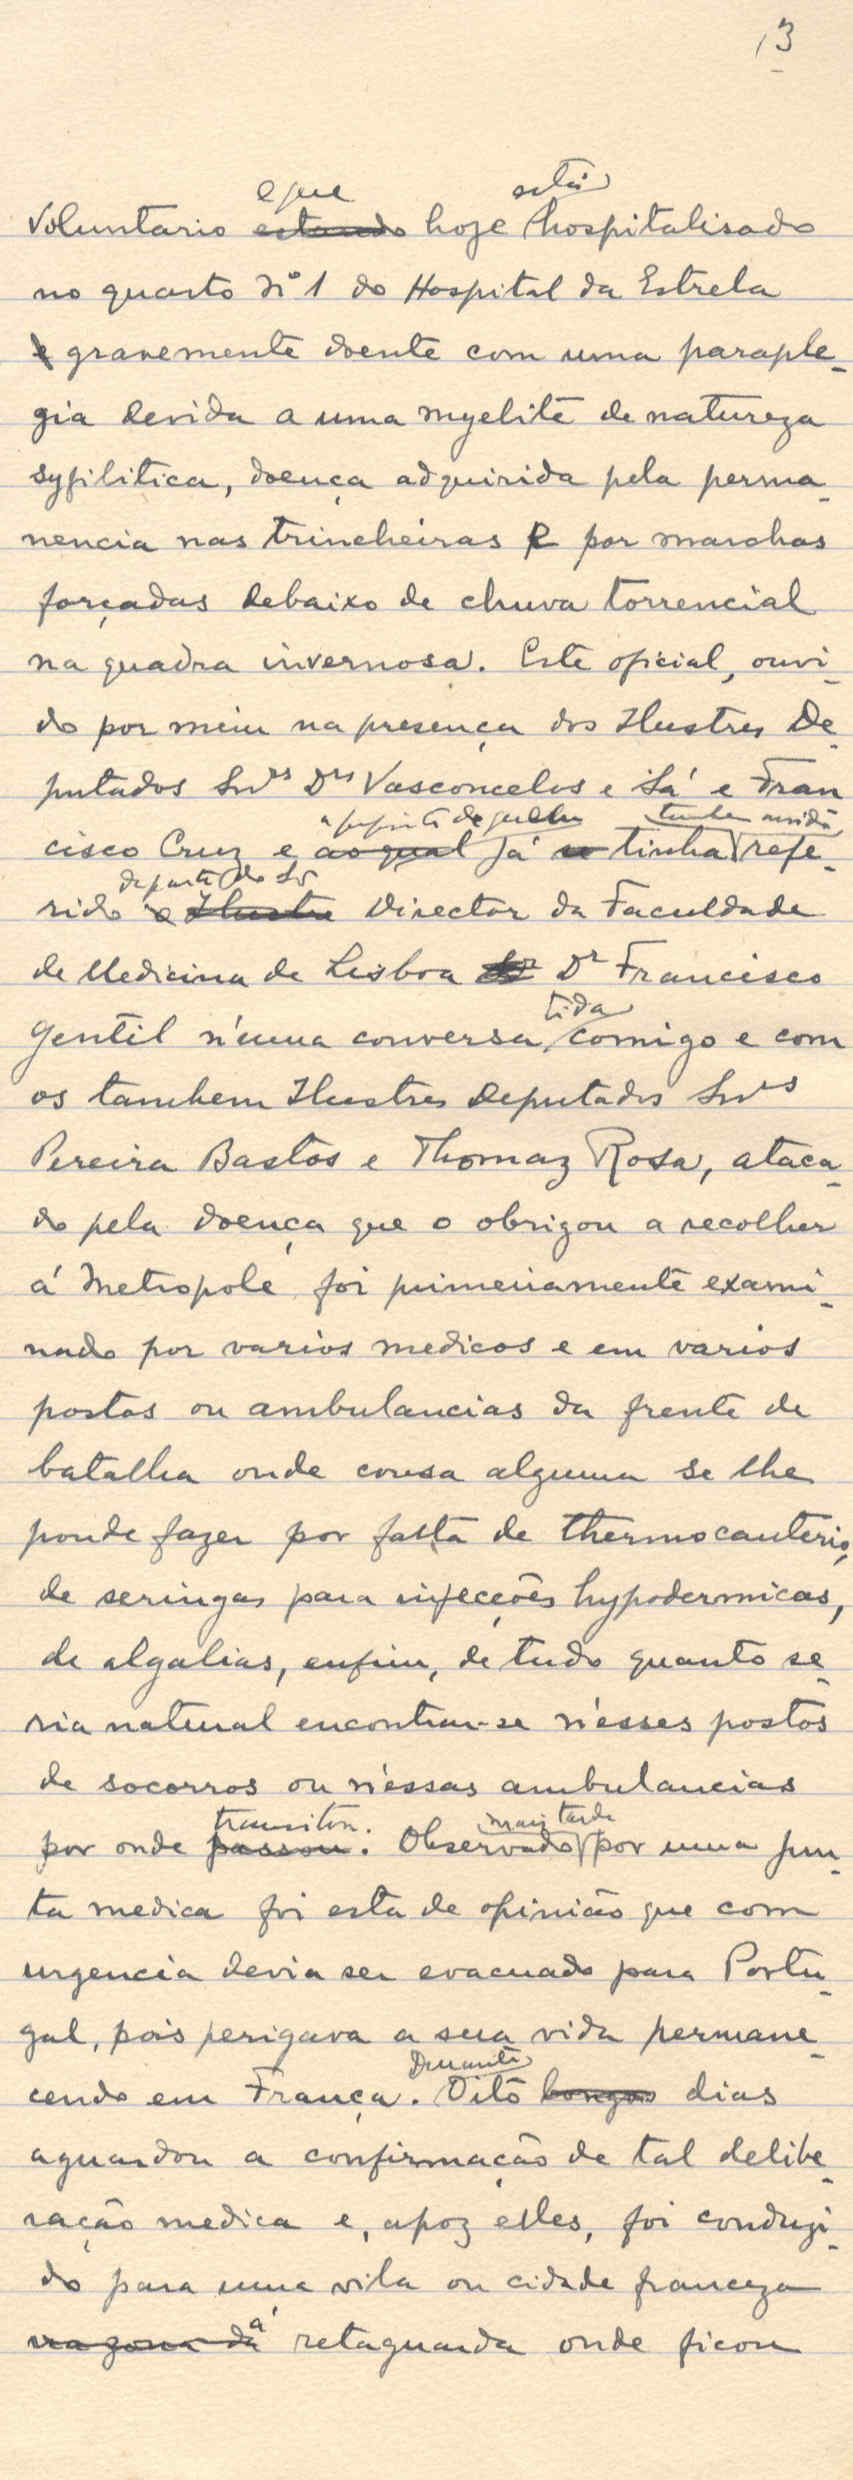 13
e que está
Voluntario estando hoje hospitalisado
no quarto nº 1 do Hospital da Estrela
e gravemente doente com uma paraple-
gia devida a uma myelite de natureza
syfilitica, doença adquirida pela perma-
nencia nas trincheiras e por marchas
forçadas debaixo de chuva torrencial
na quadra invernosa. Este oficial, ouvi-
do por mim na presença dos Ilustres De-
putados Snrs Drs Vasconcelos e Sá e Fran
a proposito de quem tambem
cisco Cruz e ao qual já se tinha refe-
da parte do Sr
rido o Ilustre Director da Faculdade
de Medicina de Lisboa Dr Francisco
tida
Gentil n'uma conversa comigo e com
os tambem Ilustres Deputados Snrs
Pereira Bastos e Thomaz Rosa, ataca-
do pela doença que o obrigou a recolher
á Metropole foi primeiramente exami-
nado por varios medicos e em varios
postos ou ambulancias da frente de
batalha onde cousa alguma se lhe
poude fazer por falta de thermocauterio,
de seringas para injecções hypodermicas,
de algalias, enfim, de tudo quanto se-
ria natural encontrar-se n'esses postos
de socorros ou n'essas ambulancias
transitou. mais tarde
por onde passou. Observado por uma jun-
ta medica foi esta de opinião que com
urgencia devia ser evacuado para Portu-
gal, pois perigava a sua vida permane-
Durante
cendo em França. Oito longos dias
aguardou a confirmação de tal delibe-
ração medica e, apoz elles, foi conduzi-
do para uma vila ou cidade franceza
á
na zona da retaguarda onde ficou